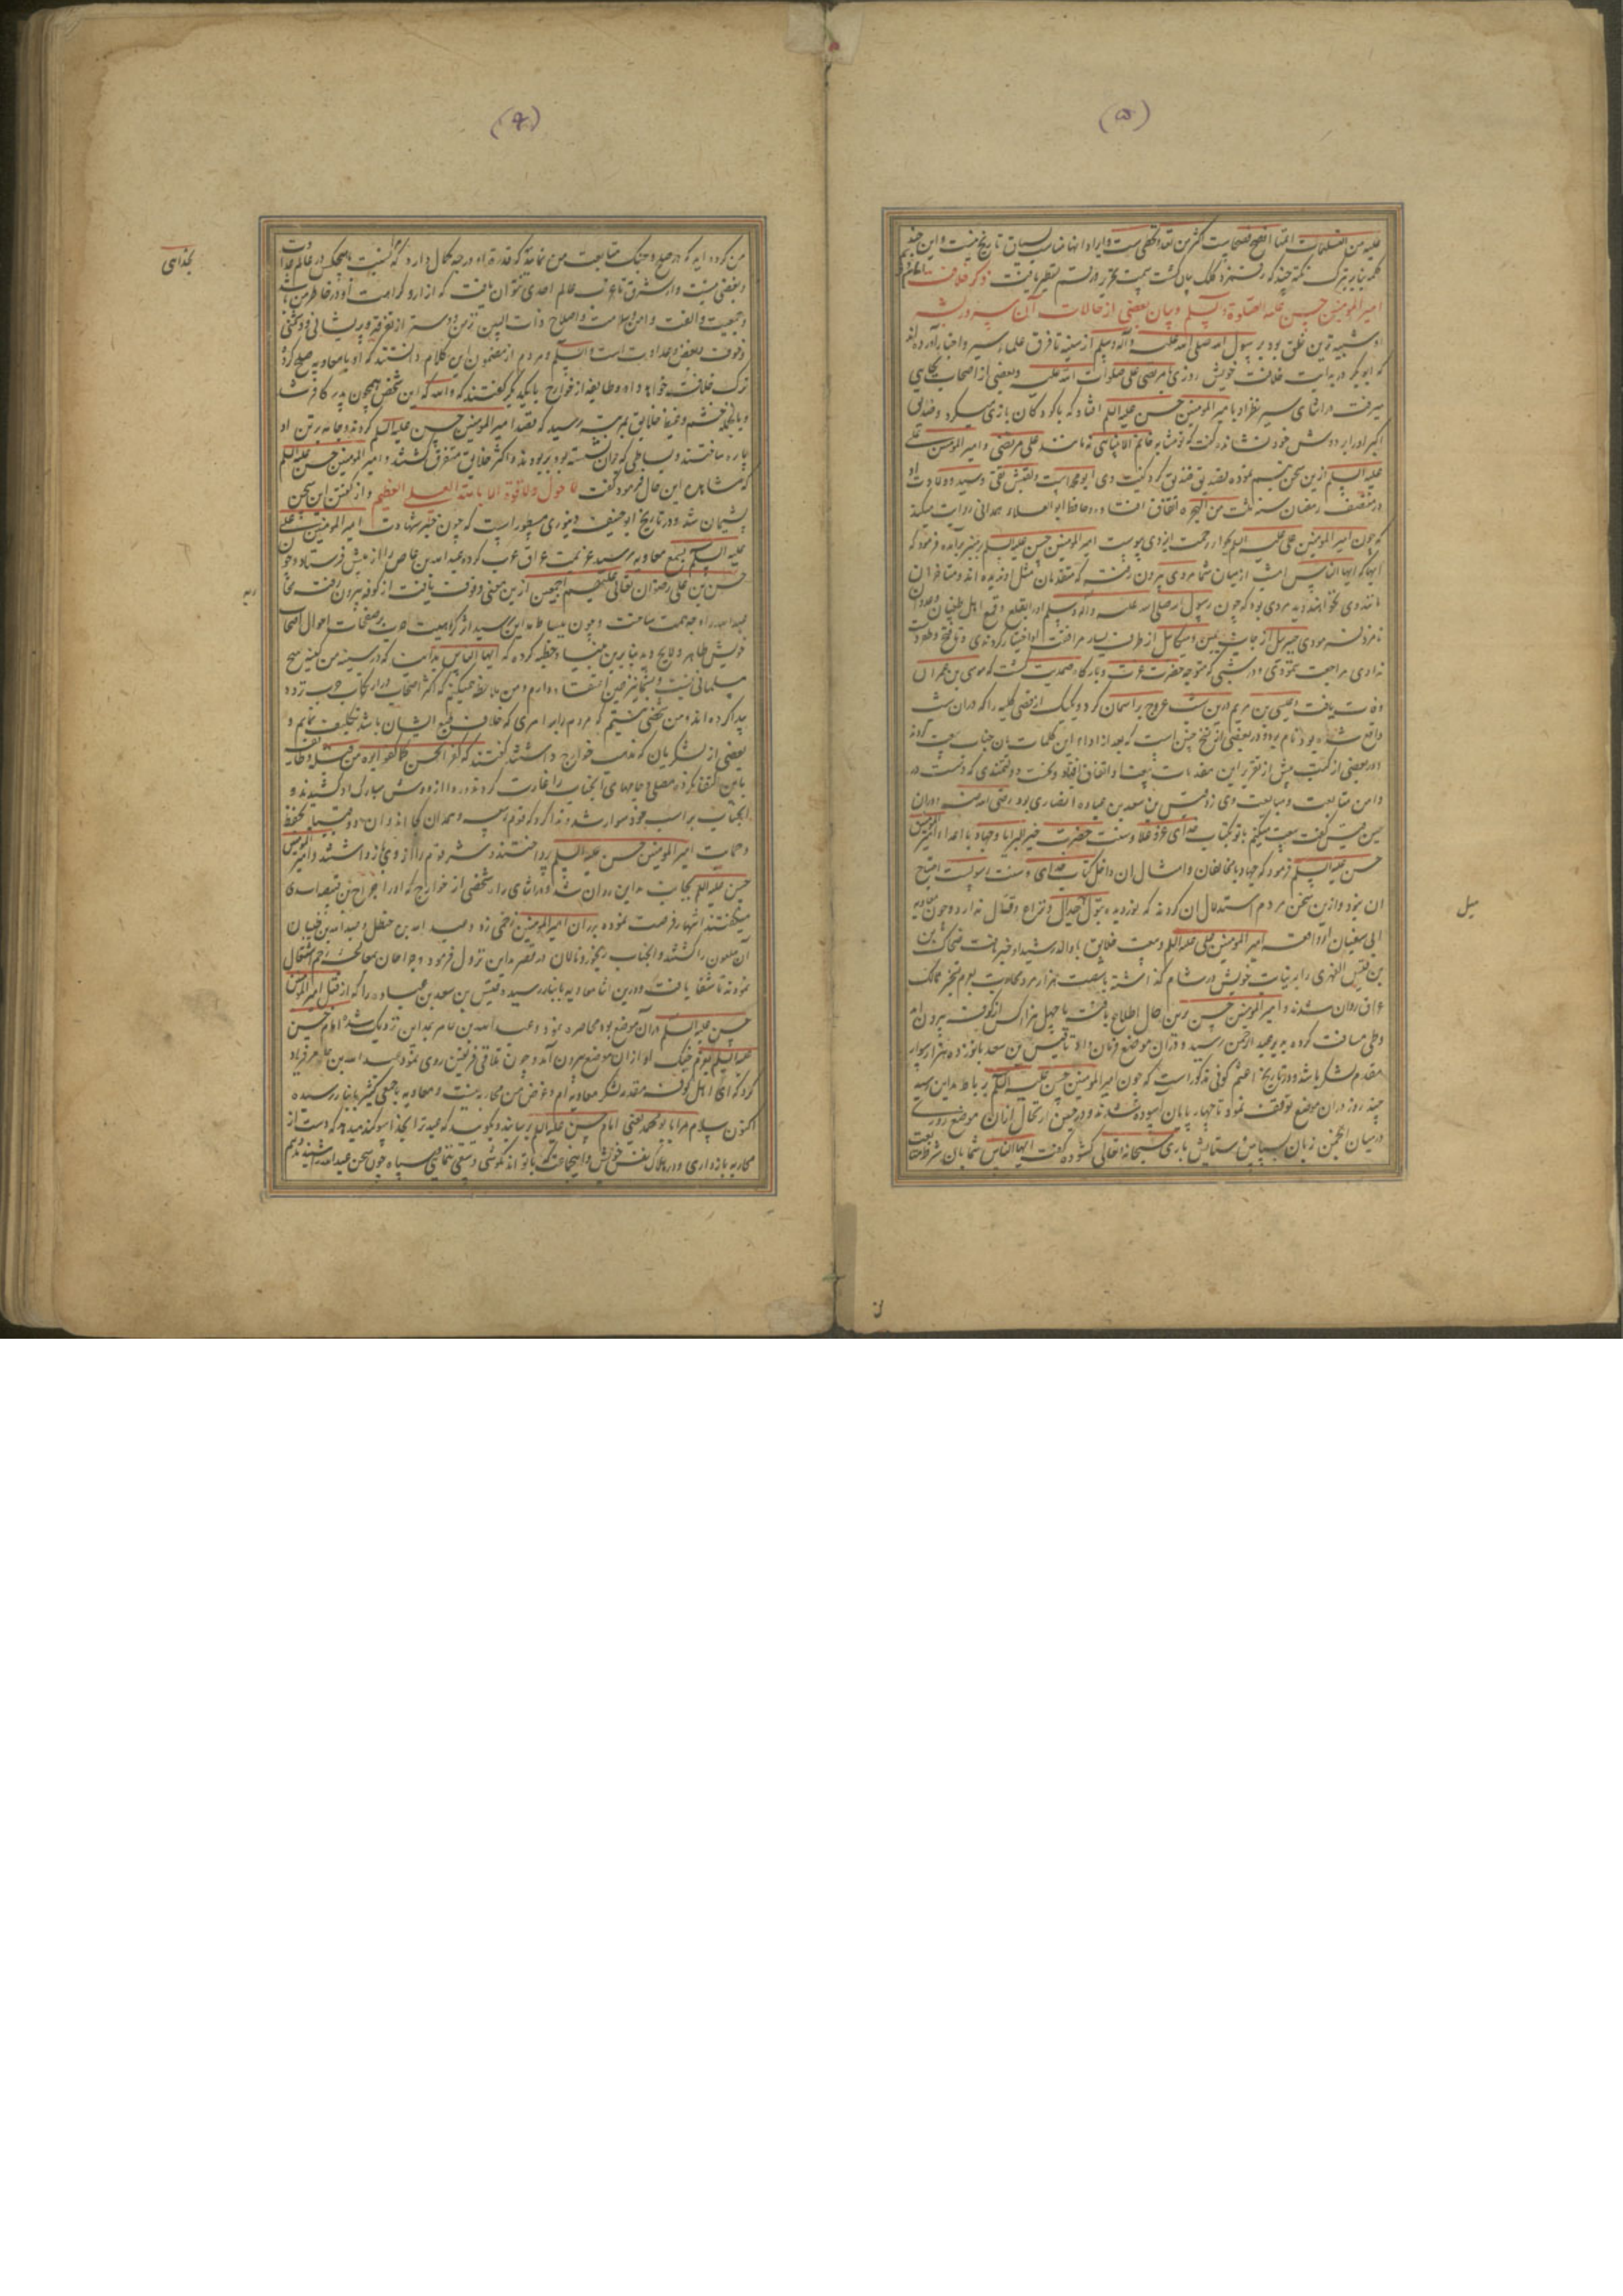 (۵)
علیه من
کلمه بنابر تبرک نکته چند که رقم زد کلک بیان گشت سمت تحریر و رقم تسطیر یافت ذکر خلافت
امیر المومنین حسن علیه الصلوة والسلم و بیان بعضی از حالات آن سرور بشر
او شبیه ترین خلق بود بر رسول الله صلی الله علیه وآله وسلم از سینه تا فرق علماء سیر و اخبار آورده اند
که ابو بکر در بدایت خلافت خویش روزی با مرتضی علی صلوات الله علیه و بعضی از اصحاب بجایی
میرفت در اثنای سیر نظر او بامیر المومنین حسن علیه السلم افتاد که با کودکان بازی میکرد و صدیق
اکبر او را بر دوش خود نشانده گفت که تو مشابه خاتم الانبیایی نه مانند علی مرتضی و امیر المومنین علی
علیه السلم ازین سخن تبسم نموده تصدیق صدیق کرد کنیت وی ابو محمد است و لقبش تقی و سید و ولادت او
در منتصف رمضان سنه ثلث من الهجره اتفاق افتاد و حافظ ابو العلاء همدانی روایت میکند
که چون امیر المومنین علی علیه السلم بجوار رحمت ایزدی پیوست امیر المومنین حسن علیه السلم بر منبر برآمده فرمود که
ایها الناس امشب از میان شما مردی بیرون رفت که متقدمان مثل او ندیده اند و متاخران
مانند وی نخواهند دید مردی بود که چون رسول الله صلی الله علیه وآله وسلم او را بقلع و قمع اهل طغیان
نامزد فرمودی جبرئیل از جانب یمین و میکائیل از طرف یسار مرافقت او اختیار کردندی و تا فتح
ندادی مراجعت ننمودی و در شبی که متوجه حضرت عزت و بارگاه صمدیت گشت که موسی بن عمران
وفات یافت و عیسی بن مریم درین شب عروج بر اسمان کرد
واقع شده بود تمام بود و در بعضی از نسخ چنین است که بعد از اداء این کلمات بان جناب بیعت کردند
و در بعضی از کتب پیش از تقریر این مقدمات بیعت اتفاق افتاد و نخست دولتمندی که دست در
دامن متابعت و مبایعت وی زد قیس بن سعد بن عباده انصاری بود رضی الله عنه
حین قیس گفت بیعت میکنم با تو بکتاب خدای عز و علا و سنت حضرت خیر البرایا و جهاد با اعداء امیر المومنین
حسن علیه السلم فرمود که جهاد با مخالفان و امثال ان داخل کتاب خدای و سنت رسولست
ان نبود و ازین سخن مردم استدلال ان کردند که نور دیده بتول جدال و نزاع و قتال ندارد و چون معاویه
ابی سفیان از واقعه امیر المومنین علی علیه السلم و بیعت خلایق با والد رشید او خبر یافت ضحاک بن
بن قیس الفهری را بر نیابت خویش در شام گذاشته با شصت هزار مرد محاربت بعزم تسخیر ممالک
عراق روان شدند و امیر المومنین حسن برین حال اطلاع یافته با چهل هزار کس از کوفه بیرون آمد
وطی مسافت کرده بدیر عبد الرحمن رسید و در ان موضع فرمان داد تا قیس بن سعد با دوازده هزار سوار
مقدم لشکر باشد و در تاریخ اعثم کوفی مذکور است که چون امیر المومنین حسن علیه السلم بساباط مداین رسید
چند روز در ان موضع توقف نمود تا چهار پایان آسوده شدند و در حین ارتحال از ان موضع روزی
در میان انجمن زبان بسپاس و ستایش باری سبحانه و تعالی گشوده گفت ایها الناس شما بان شرط با من بیعت
میل
(۶)
من کرده اید که در صلح و جنگ متابعت من نمائید
و بغضی نیست و از شرق تا غرب عالم احدی نتوان یافت که از ارو کراهت او در خاطر من باشد
و جمعیت و الفت و امن و سلامت و اصلاح ذات البین نزد من دوستر از تفرقه و پریشانی و دشمنی
و خوف و بغض و عداوت است والسلم و مردم از مضمون این کلام دانستند که او با معاویه صلح کرده
ترک خلافت خواهد داد و طایفه از خوارج با یکدیگر گفتند که والله که این شخص همچون پدر کافر شد
و بالجمله خشم و غیظ خلایق بمرتبه رسید که قصد امیر المومنین حسن علیه السلم کردند و جامه بر تن او
پاره ساختند و بساطی که بران نشسته بود بربودند و اکثر خلایق متفرق گشتند و امیر المومنین حسن علیه السلم
که مشاهده این حال فرمود گفت لا حول ولا قوة الا بالله العلی العظیم و از گفتن این سخن
پشیمان شد و در تاریخ ابو حنیفه دینوری مسطور است که چون خبر شهادت امیر المومنین علی
علیه السلم بسمع معاویه رسید عزیمت عراق عرب کرده عبد الله بن عامر را از پیش فرستاد و چون
حسن بن علی رضوان الله تعالی علیهم اجمعین ازین معنی وقوف یافت از کوفه بیرون رفت
عبد الله را وجه همت ساخت و چون بساباط مداین رسید اثر کراهیت حرب بر صفحات احوال اصحاب
خویش ظاهر و لایح دید بنابرین خطبه کرده که ایها الناس بدانید که در سینه من کینه هیچ
مسلمانی نیست
پیدا کرده اند و من شخصی نیستم که مردم را به امری که خلاف طبع ایشان باشد تکلیف نمایم و
بعضی از لشکریان که مذهب خوارج داشتند گفتند که کفر الحسن کما کفر ابوه من قبله
باین اکتفا نکرده مصلی و جامهای آنجناب را غارت کردند و ردا از دوش مبارک او کشیدند و
آنجناب بر اسب خود سوار شده ندا کرد که قوم ربیعه و همدان کجا اند و ان دو قبیله بحفظ
و حمایت امیر المومنین حسن علیه السلم پرداختند و شر قوم را از وی باز داشتند و امیر المومنین
حسن علیه السلم بجانب مداین روان شد و در اثنای راه شخصی از خوارج که او را جراح بن قبیصه اسدی
میگفتند انتهاز فرصت نموده بر ران امیر المومنین زخمی زد و عبد الله بن حنظل و عبد الله بن ظبیان
آن ملعون را کشتند و آنجناب رنجور و نالان در قصر مداین نزول فرمود و جراحان بمعالجه زخم اشتغال
نمودند تا شفا یافت و درین اثنا معاویه بانبار رسید و قیس بن سعد بن عباده را که از قبل امیر المومنین
حسن علیه السلم دران موضع بود محاصره نمود و عبد الله بن عامر بمداین نزدیک شد امام حسن
علیه السلم بعزم جنگ او از ان موضع بیرون آمد و چون تلاقی فریقین روی نمود عبد الله بن عامر فریاد
کرد که ای اهل کوفه من مقدمه لشکر معاویه ام و غرض من محاربه نیست و معاویه با جمعی کثیر بانبار رسیده
اکنون سلام مرا با بو محمد یعنی امام حسن علیه السلم برسانید و بگویید که عبد الله ترا بخدا سوگند میدهد که دست از
محاربه باز داری و در هلاک نفس خویش و اینجماعت که با تو اند نکوشی
بخدای